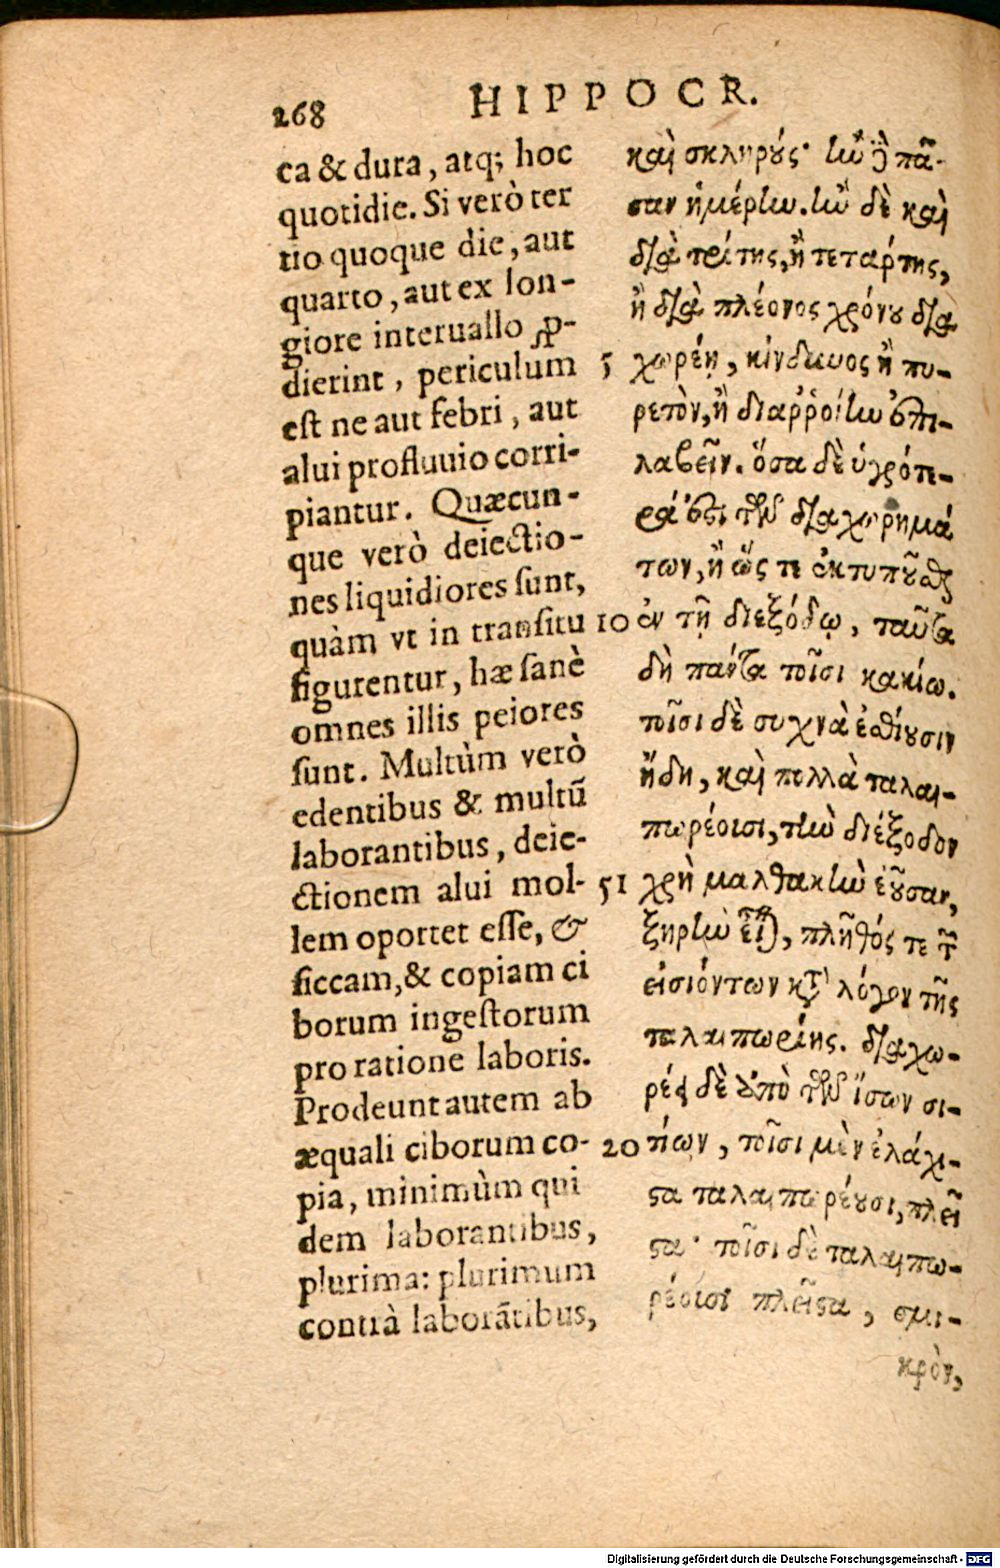 268
HIPPOCR.
ca & dura, atq; hoc
quotidie. Si verò ter
tio quoque die, aut
quarto, aut ex lon-
giore interuallo ꝓ-
dierint, periculum
est ne aut febri, aut
alui profluuio corri-
piantur. Quæcun-
que verò deiectio-
nes liquidiores sunt,
quàm vt in transitu
figurentur, hæ sanè
omnes illis peiores
sunt. Multùm verò
edentibus & multũ
laborantibus, deie-
ctionem alui mol-
lem oportet esse, &
siccam, & copiam ci
borum ingestorum
pro ratione laboris.
Prodeunt autem ab
æquali ciborum co-
pia, minimùm qui
dem laborantibus,
plurima: plurimum
contrà laborãtibus,
καὶ σκληρούς· ἢν δὲ πᾶ-
σαν ἡμέρην. ἢν δὲ καὶ
διὰ τρίτης, ἢ τετάρτης,
ἢ διὰ πλέονος χρόνου δια
5 χωρέῃ, κίνδυνος ἢ πυ-
ρετὸν, ἢ διαῤῥοίην ἐπι-
λαβεῖν. ὅσα δὲ ὑγρότε-
ρά ἐστι τῶν διαχωρημά
των, ἢ ὥς τε ἐκτυποῦσθαι
10 ἐν τῇ διεξόδῳ, ταῦτα
δὴ πάντα τοῖσι κακίω.
τοῖσι δὲ συχνὰ ἐσθίουσιν
ἤδη, καὶ πολλὰ ταλαι-
πωρέοισι, τὴν διέξοδον
51 χρὴ μαλθακὴν ἐοῦσαν,
ξηρὴν εἶναι, πλῆθός τε τῶν
εἰσιόντων κατὰ λόγον τῆς
ταλαιπωρίης. διαχω-
ρέει δὲ ἀπὸ τῶν ἴσων σι-
20 τίων, τοῖσι μὲν ἐλάχι-
στα ταλαιπωρέουσι, πλεῖ
στα· τοῖσι δὲ ταλαιπω-
ρέοισι πλεῖστα, σμι-
κρὸν,
Digitalisierung gefördert durch die Deutsche Forschungsgemeinschaft - DFG